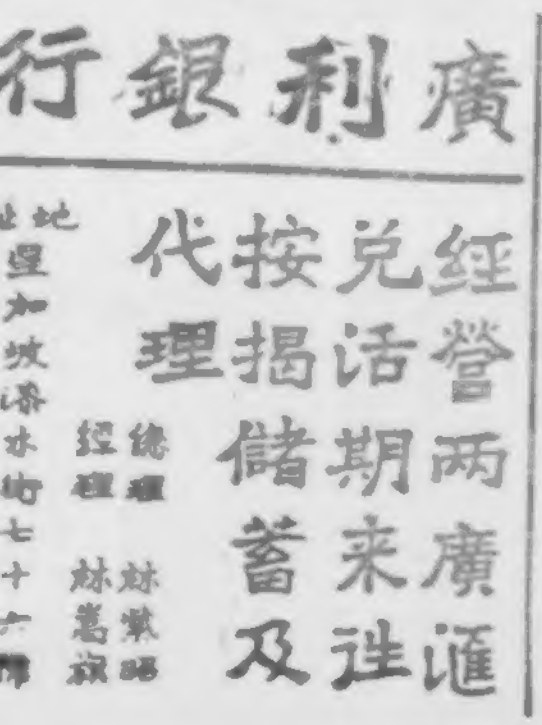 廣利銀行
經營两廣滙
兑活期来徃
按揭儲蓄及
代理
總理 林紫昭
經理 林嵩淑
地址
星加坡漆水街七十六號